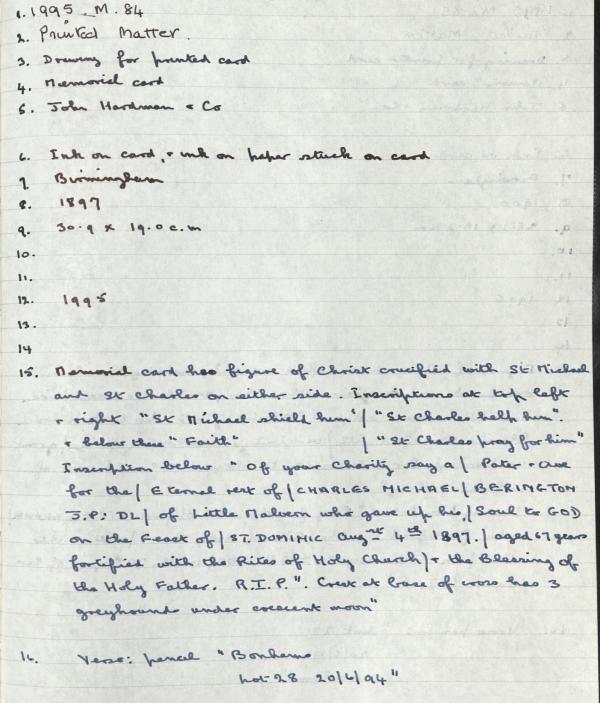 1. 1995. M. 84
2. Printed Matter.
3. Drawing for printed card
4. Memorial card
5. John Hardman & Co
6. Ink on card, & ink on paper stuck on card
7. Birmingham
8. 1897
9. 30.9 x 19.0 c.m
10.
11.
12. 1995
13.
14
15. Memorial card has figure of Christ crucified with St Michael
and St Charles on either side. Inscriptions at top left
& right "St Michael shield him' / "St Charles help him".
& below these "Faith" / "St Charles pray for him"
Inscription below "Of your Charity say a / Pater & ave
for the / Eternal rest of / CHARLES MICHAEL / BERINGTON
J.P: DL / of Little Malvern who gave up his / Soul to GOD
on the Feast of / ST. DOMINIC Augst 4th 1897. / aged 67 years
fortified with the Rites of Holy Church / & the Blessing of
the Holy Father. R.I.P.". Crest at base of cross has 3
greyhounds under crescent moon"
16. Verso: pencil "Bonhams
Lot 28 20/6/94"